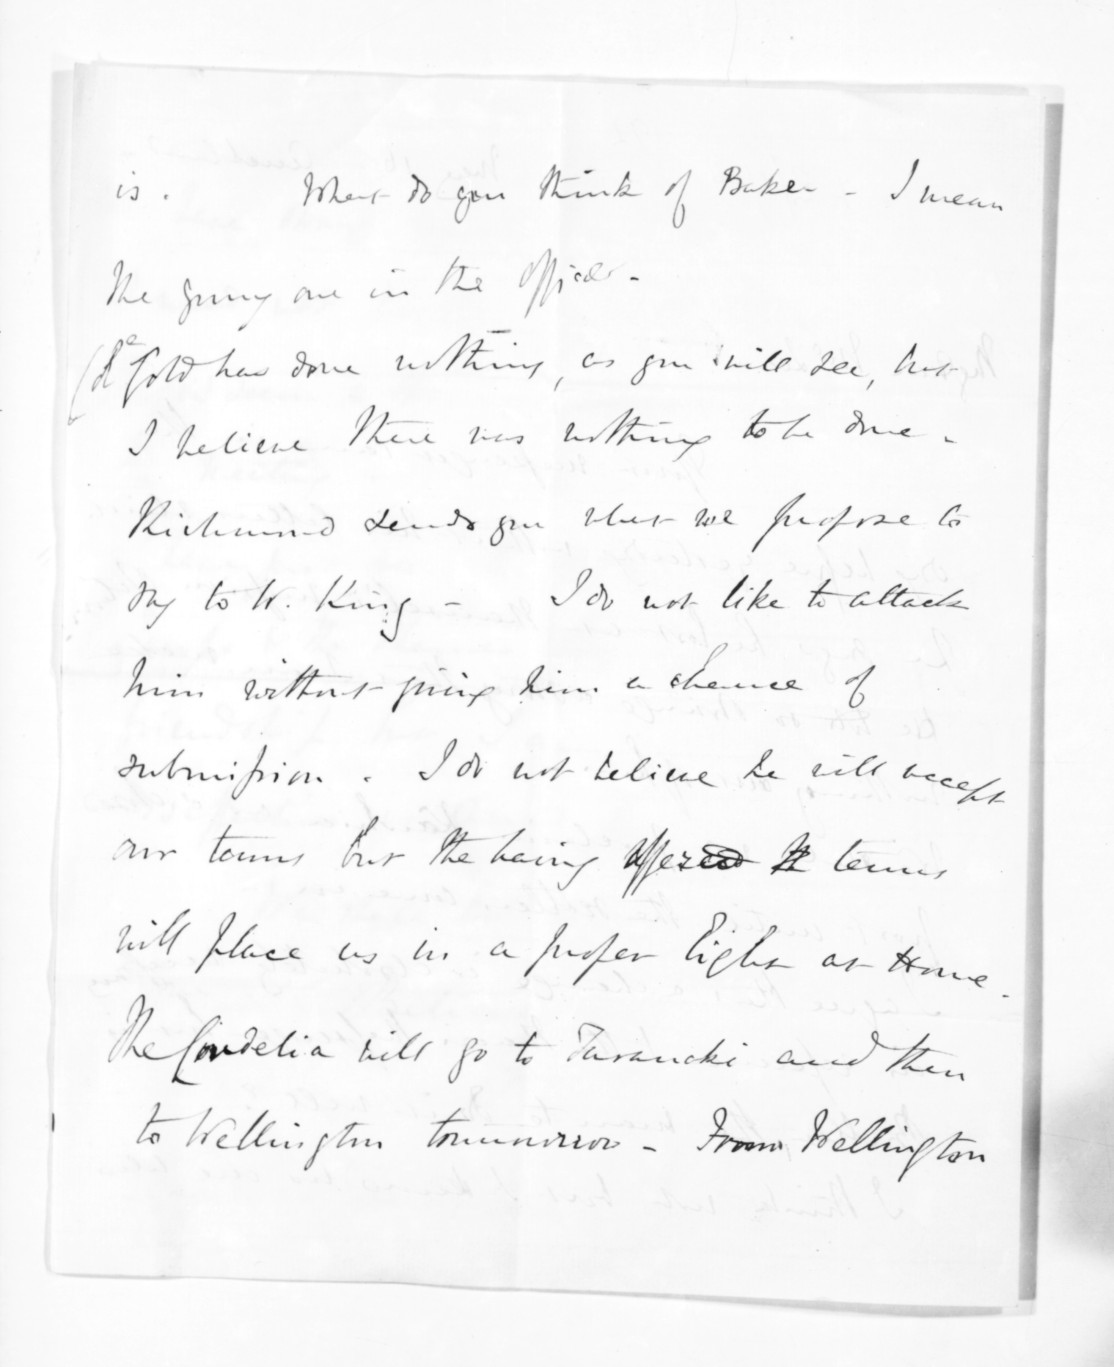 is. What do you think of Baker - I mean
the young one in the office -
Gold has done nothing, as you will see, but
I believe there was nothing to be done -
Richmond sends you what we propose to
say to W. King - I do not like to attack
him without giving him a chance of
submission. I do not believe he will accept
our terms but the having offered terms
will place us in a proper light at Home.
The Cordelia will go to Taranaki and then
to Wellington tomorrow - From Wellington